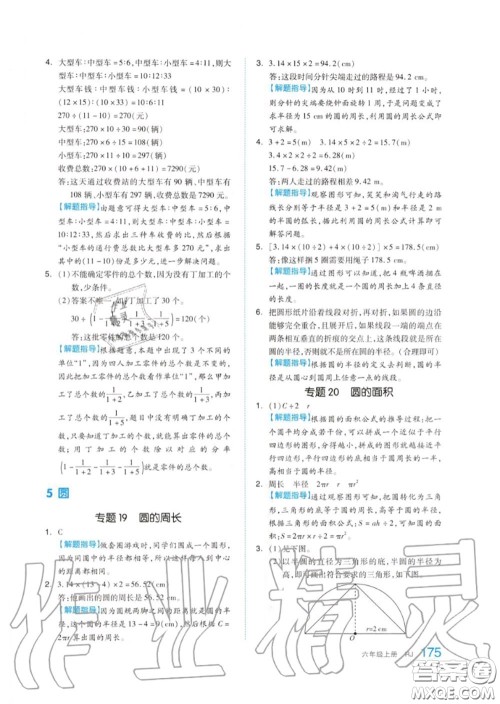 4. 大型车:中型车=5:6,中型车:小型车=4:11,则大
型车:中型车:小型车=10:12:33
大型车钱:中型车钱:小型车钱=(10×30):
(12×15):(10×33)=10:6:11
270÷(11-10)=270(元)
大型车:270×10÷30=90(辆)
中型车:270×6÷15=108(辆)
小型车:270×11÷10=297(辆)
收费总数:270×(10+6+11)=7290(元)
答:这天通过收费站的大型车有90辆、中型车有
108辆、小型车有297辆,收费总数是7290元。
【解题指导】由题意可得大型车:中型车=5:6,中
型车:小型车=4:11,则大型车:中型车:小型车=
10:12:33,然后求出三种车收费的比,根据
“小型车的通行费总数比大型车多270元”,求出
其中的(11-10)份是多少元,进一步解决问题。
5. (1)不能确定零件的总个数,因为没有丁加工的个
数,少条件。
(2)答案不唯一,如:丁加工了30个
30÷(1-1/(1+2)-1/(1+3)-1/(1+5))=120(个)
答:这批零件的总个数是120个。
【解题指导】根据题意,本题中出现了3个不同的
单位“1”,因此要把不同的单位“1”统一起来,即把
要加工零件的总个数看作单位“1”,可知甲加工了
总个数的1/(1+2),乙加工了总个数的1/(1+3),丙加工了
总个数的1/(1+5),题目中没有明确丁加工的个
数,给出丁加工的个数,就能算出零件的总个数。
用丁加工的个数除以对应的分率
(1-1/(1+2)-1/(1+3)-1/(1+5)),就是零件的总个数。
5 圆
专题19 圆的周长
1. C
【解题指导】做套圈游戏时,同学们围成一个圆形,
因为同圆中的半径都相等,所以这样每人到中心
的距离都相同。
2. 3.14×(13-4)×2=56.52(cm)
答:他画出的圆的周长是56.52 cm。
【解题指导】因为圆规两脚之间的距离就是圆的半
径,所以圆的半径是13-4=9(cm),然后根据C=
2πr算出圆的周长。
3. 3.14×15×2=94.2(cm)
答:这段时间分针尖端走过的路程是94.2 cm。
【解题指导】因为从10时到11时,经过了1小时,
则分针的尖端要绕钟面旋转1周,根据题意可知是
求半径为15 cm的圆的周长,利用圆的周长公式即
可求解。
4. 3+2=5(m) 3.14×(3+2)=15.7(m)
3.14×2=6.28(m)
15.7-6.28=9.42(m)
答:两人走过的路程相差9.42 m。
【解题指导】观察图形可知,笑笑和淘气行走的路
线长分别等于半径为3+2=5(m)的半圆和半径为
2 m的半圆的弧长,据此利用圆的周长公式计算即可
解答问题。
5. [3.14×10+(10÷2)×8]×2.5=178.5(cm)
答:像这样捆5圈需要用绳子178.5 cm。
【解题指导】通过图形可以看出,把4瓶啤酒捆在
一起,一圈的长度就是一个圆的周长加上4条直径
的长度。
6. 把圆形纸片沿着线段对折,再打开,如果圆的边沿
能够完全重合,且展开后,如果线段一端的点还在
两次对折的折痕的交点上,则这条线段就是所在
圆的半径,否则就不是所在圆的半径。(合理即可)
【解题指导】根据半径的定义去判断,圆的半径是从圆心到圆周上任意一点的线段。
专题20 圆的面积
1. (1)C÷2 r
【解题指导】根据圆的面积公式的推导过程,把一
个圆平均分成若干份,可以拼成一个近似的平行
四边形的图形,分得越小,拼成的图形就越接近平
行四边形,拼成的平行四边形的底相当于圆周长
的一半,高相当于圆的半径。
2. 周长 半径 πr πr²
【解题指导】通过观察图形可知,把圆转化为三角
形,三角形的底等于圆的周长,高等于圆的半径,
根据三角形的面积公式S=ah÷2,可知圆的面积公
式:S=2πr×r÷2=πr²。
3. (1)见下图。
(2)以半圆的直径为三角形的底,半圆的半径为
高,即可画出符合要求的三角形,如下图。
O
r=2 cm
六年级上册 RJ 175
作业精灵